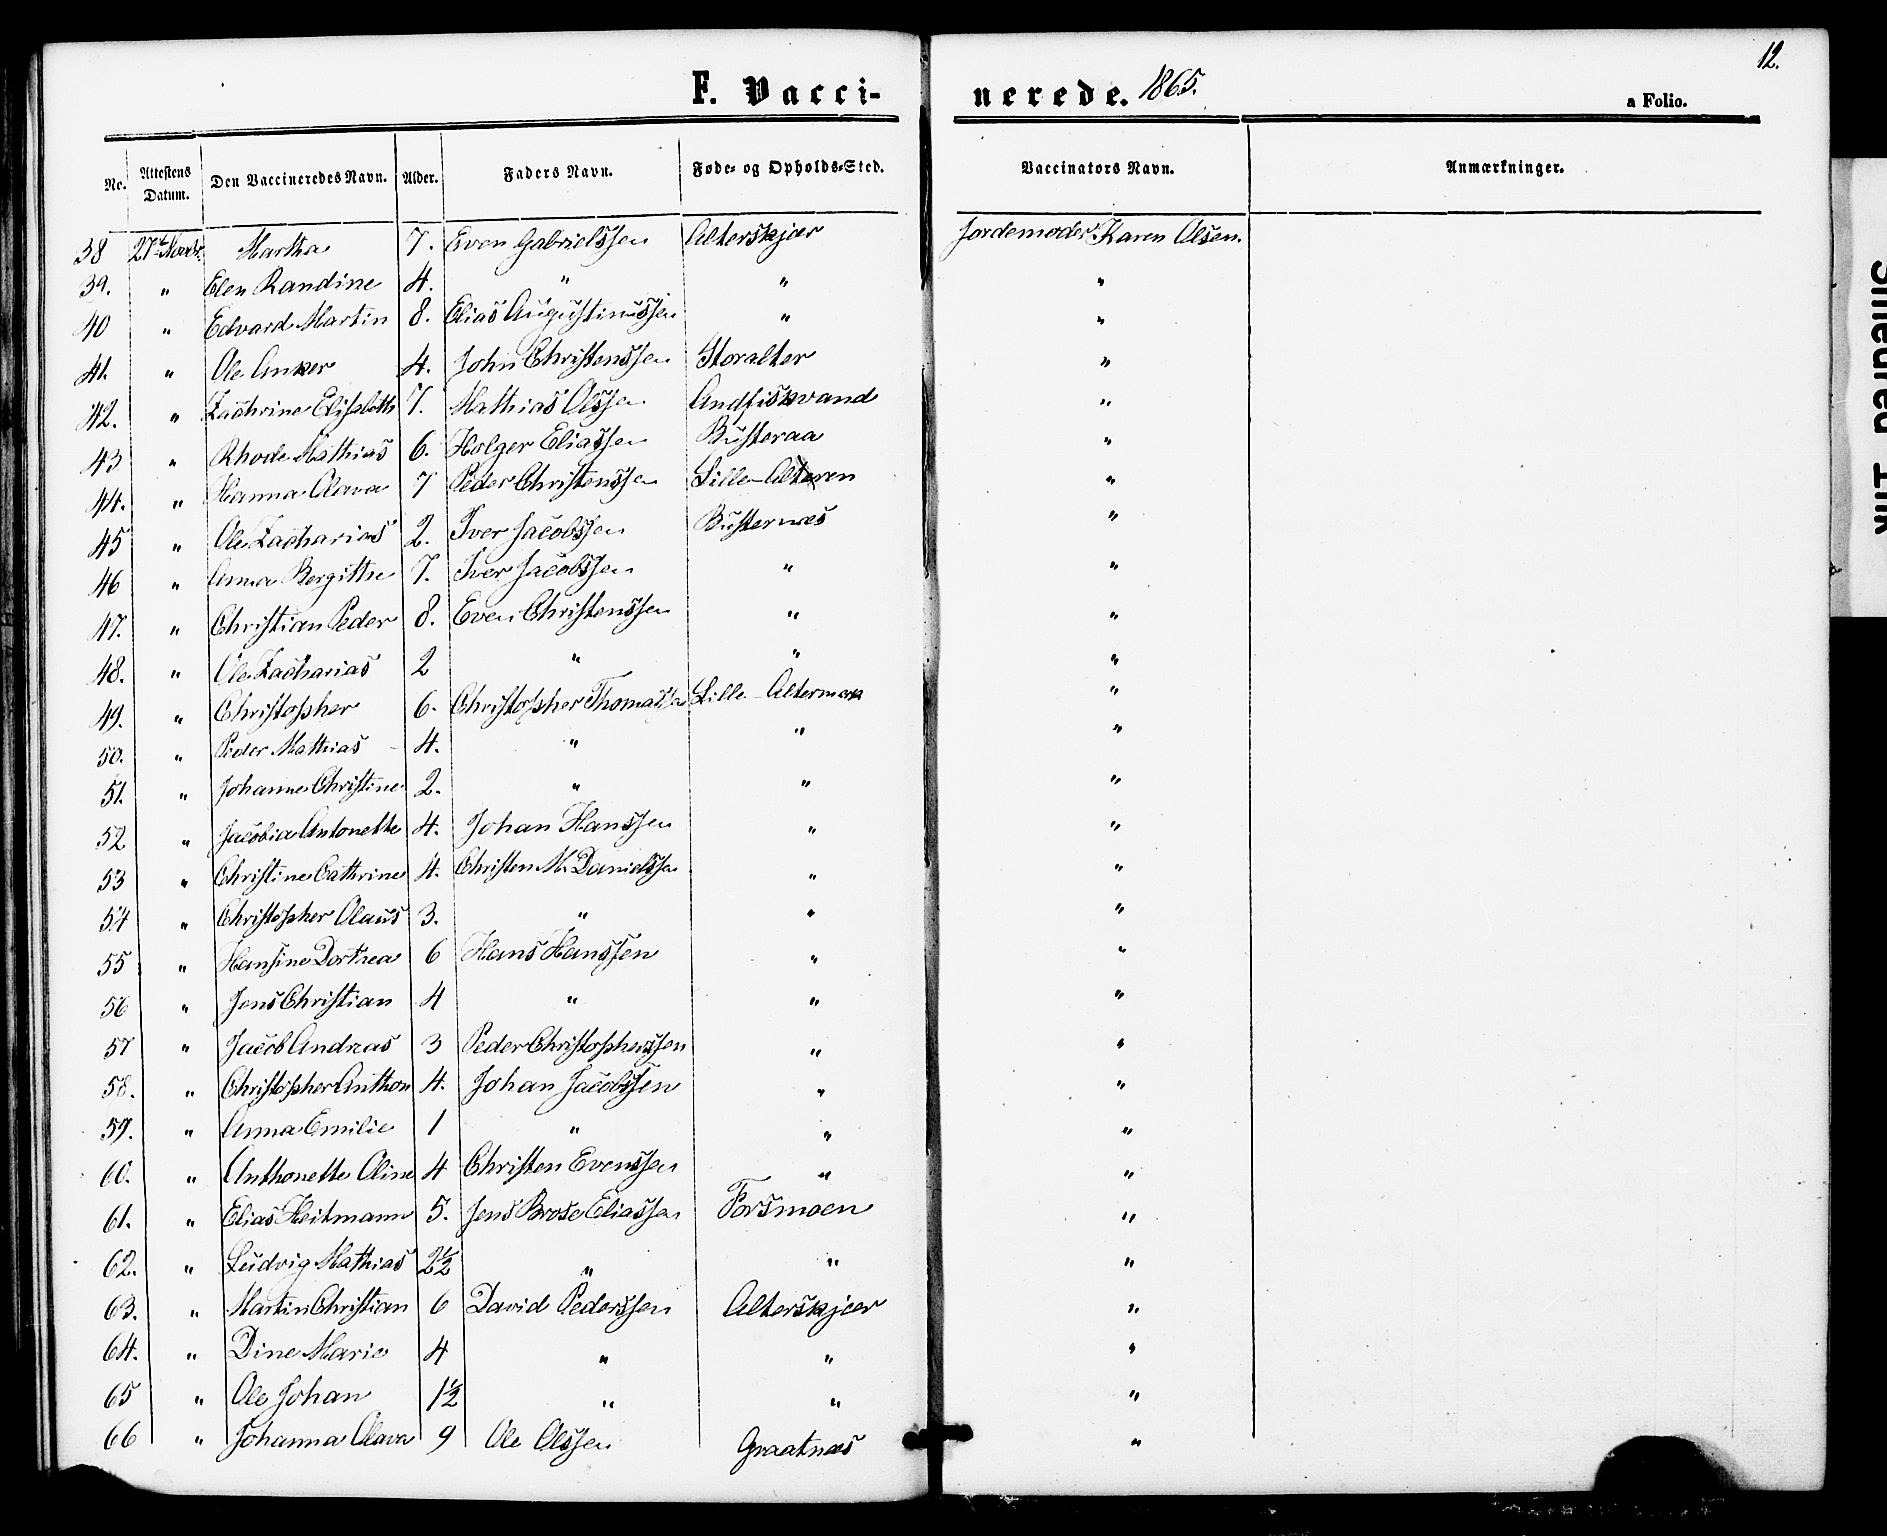 12.
F. Vacci- nerede. 1865.
a Folio.
No. Attestens Datum. Den Vaccineredes Navn. Alder. Faders Navn. Føde- og Opholds-Sted. Vaccinators Navn. Anmærkninger.
38 27de Novbr. Martha 7. Even Gabrielssen Alterskjær Jordemoder Karen Olsen.
39. " Elen Randine 4. " " "
40 " Edvard Martin 8. Elias Augustinussen " "
41. " Ole Anker 4. John Christenssen Storalter "
42. " Zachrine Elisabeth 7. Mathias Olssen Andfiskvand "
43 " Rhode Mathias 6. Holger Eliassen Busteraa "
44. " Hanna Olava 7 Peder Christenssen Lille-Alteren "
45 " Ole Zacharias 2. Iver Jacobssen Busternæs "
46 " Anna Bergithe 7. Iver Jacobssen " "
47. " Christian Peder 8. Even Christenssen " "
48. " Ole Zacharias 2 " " "
49. " Christopher 6. Christopher Thomassen Lille-Alteren "
50. " Peder Mathias 4. " " "
51. " Johanne Christine 2. " " "
52 " Jacobia Antonette 4. Johan Hanssen " "
53 " Christine Cathrine 4. Christen M. Danielssen " "
54 " Christopher Olaus 3. " " "
55 " Hansine Dorthea 6 Hans Hanssen " "
56 " Jens Christian 4 " " "
57 " Jacob Andreas 3 Peder Christopherssen " "
58. " Christopher Anthon 4. Johan Jacobssen " "
59. " Anna Emilie 1 " " "
60. " Anthonette Oline 4 Christen Evenssen " "
61. " Elias Heitmann 5. Jens Brose Eliassen Forsmoen "
62. " Ludvig Mathias 2½ " " "
63. " Martin Christian 6 David Pederssen Alterskjær "
64. " Dine Marie 4 " " "
65 " Ole Johan 1½ " " "
66 " Johanna Olava 9 Ole Olssen Graatnæs "